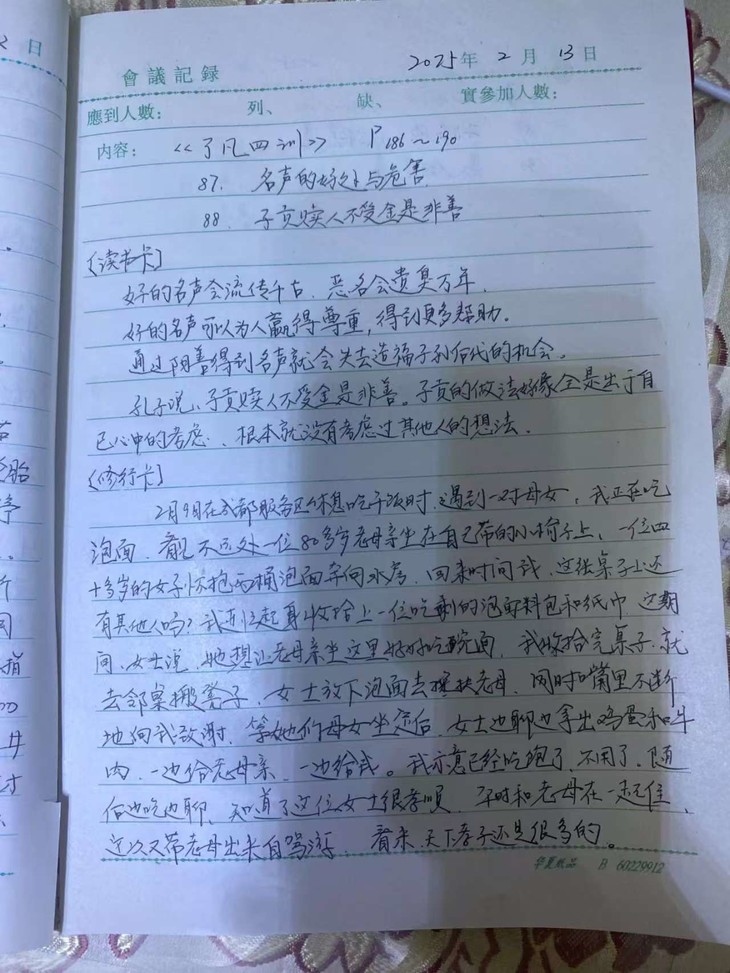 2日
會議記録 2025年2月13日
應到人數: 列、 缺、 實參加人數:
内容: <<了凡四训>> P186~190
87. 名声的好处与危害
88. 子贡赎人不受金是非善
[读书卡]
好的名声会流传千古,恶名会遗臭万年.
好的名声可以为人赢得尊重,得到更多帮助。
通过阳善得到名声就会失去造福子孙后代的机会。
孔子说,子贡赎人不受金是非善。子贡的做法好像全是出于自
己心中的考虑、根本就没有考虑过其他人的想法.
[修行卡]
2月9日在成都服务区休息吃午饭时,遇到一对母女,我正在吃
泡面,看见不远处一位80多岁老母亲坐在自己带的小椅子上、一位四
十多岁的女子怀抱两桶泡面奔向水房,回来时问我,这张桌子上还
有其他人吗?我连忙起身收拾上一位吃剩的泡面料包和纸巾 这期
间,女士说,她想让老母亲坐这里好好吃碗面,我收拾完桌子.就
去邻桌搬凳子,女士放下泡面去搀扶老母,同时嘴里不断
地向我致谢,等她们母女坐定后,女士边聊边拿出鸡蛋和牛
肉,一边给老母亲,一边给我。我示意已经吃饱了,不用了,随
后边吃边聊、知道了这位女士很孝顺 平时和老母在一起住、
这次又带老母出来自驾游, 看来,天下孝子还是很多的。
华夏纸品 B 60229912